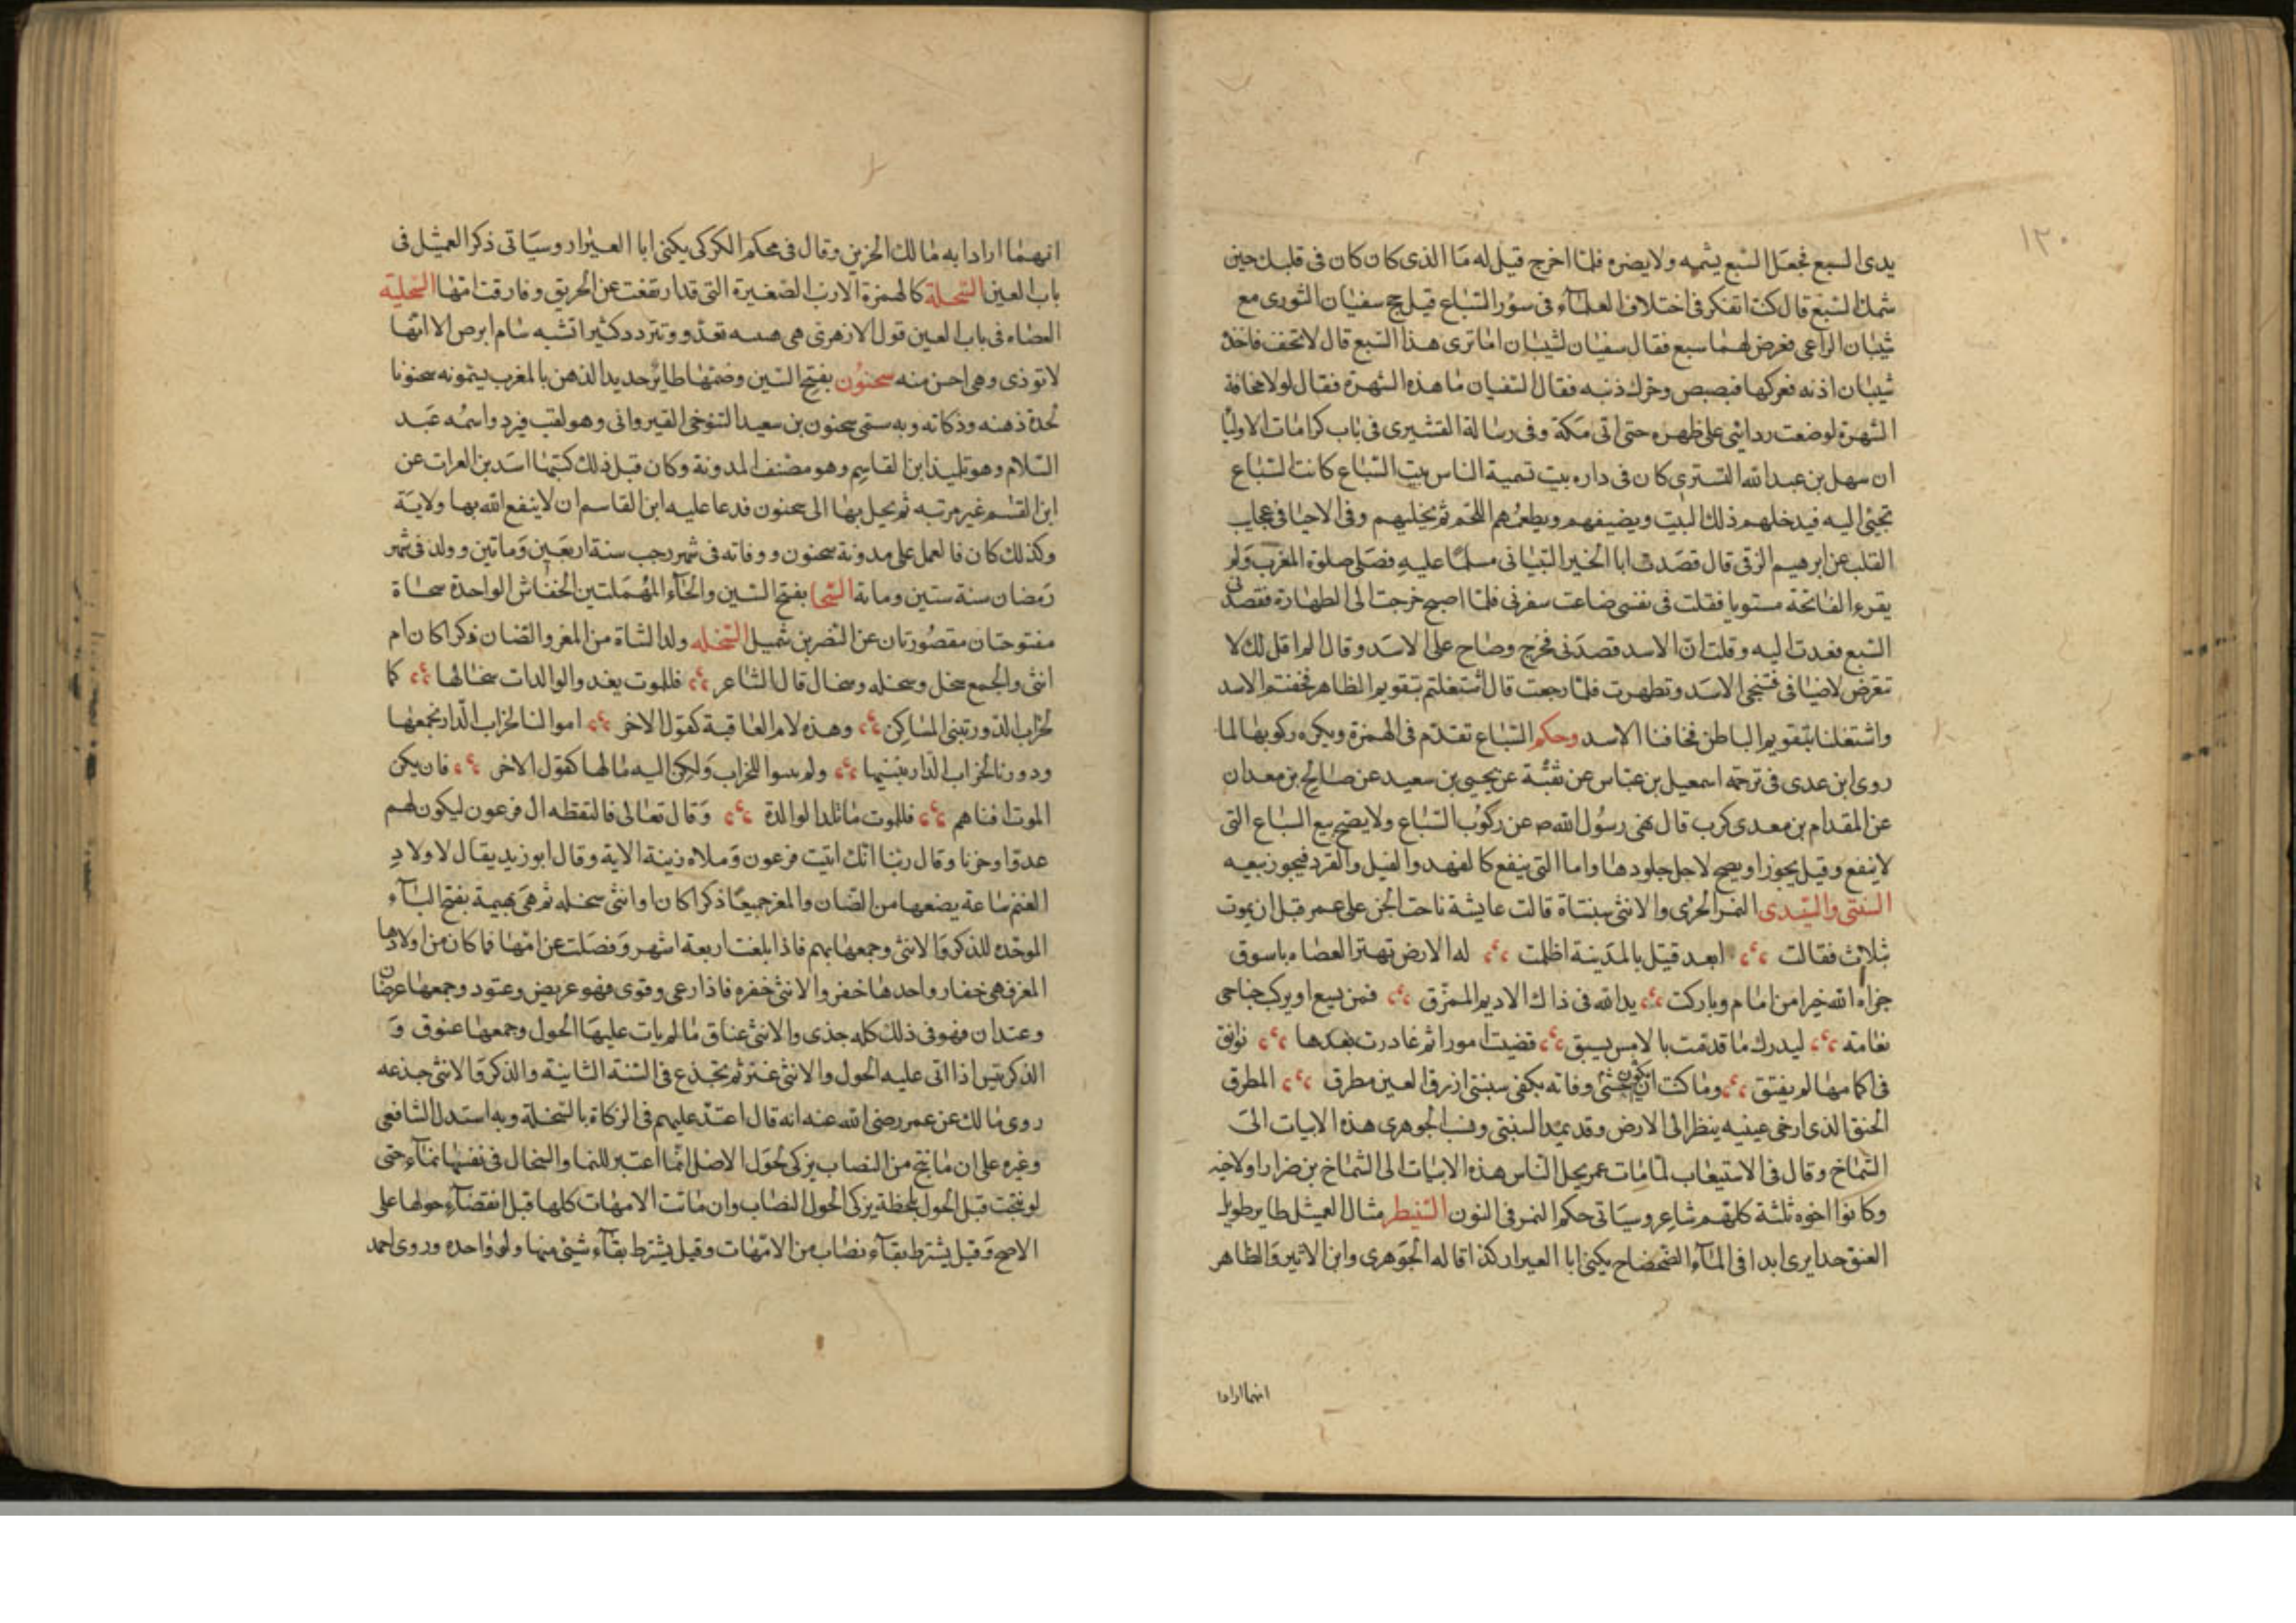 ١٢٠
يدى السبع فجعل السبع يشمه ولا يضره فلما اخرج قيل له ما الذى كان كان فى قلبك حين
شمك السبع قال كنت اتفكر فى اختلاف العلماء فى سؤر السباع قيل حج سفيان الثورى مع
شيبان الراعى فعرض لهما سبع فقال سفيان لشيبان اما ترى هذا السبع قال لا تخف فاخذ
شيبان اذنه فعركها فبصبص وحرك ذنبه فقال السفيان ما هذه الشهرة فقال لولا مخافة
الشهرة لوضعت ردائى على ظهره حتى اتى مكة وفى رسالة القشيرى فى باب كرامات الاوليا
ان سهل بن عبد الله التسترى كان فى داره بيت تسمية الناس بيت السباع كانت السباع
تجيئى اليه فيدخلهم ذلك البيت ويضيفهم ويطعمهم اللحم ثم يخليهم وفى الاحيا فى عجايب
القلب عن ابرهيم الرقى قال قصدت ابا الخير التيناتى مسلما عليه فصلى صلوة المغرب ولم
يقرء الفاتحة مستويا فقلت فى نفسى ضاعت سفرتى فلما اصبح خرجت الى الطهارة فقصدنى
السبع فعدت اليه وقلت ان الاسد قصدنى فخرج وصاح على الاسد وقال الم اقل لك لا
تتعرض لاضيافى فتنحى الاسد وتطهرت فلما رجعت قال اشتغلتم بتقويم الظاهر فخفتم الاسد
واشتغلنا بتقويم الباطن فخافنا الاسد وحكم السباع تقدم فى الهمزة ويكره ركوبها لما
روى ابن عدى فى ترجمة اسمعيل بن عياش عن بقية عن يحيى بن سعيد عن صالح بن معدان
عن المقدام بن معدى كرب قال نهى رسول الله ص عن ركوب السباع ولا يصح بيع السباع التى
لا ينفع وقيل يجوز او يصح لاجل جلودها واما التى ينفع كالفهد والفيل والقرد فيجوز بيعه
السبنتى والسبندى النمر الجرى والانثى سبنتاة قالت عايشة ناحت الجن على عمر قبل ان يموت
بثلاث فقالت ابعد قتيل بالمدينة اظلمت له الارض تهتز العضاه باسوق
جزاه الله خيرا من امام وباركت يد الله فى ذاك الاديم الممزق فمن يسع او يركب جناحى
نعامة ليدرك ما قدمت بالامس يسبق قضيت امورا ثم غادرت بعدها نوافق
فى اكمامها لم يفتق وما كنت اخشى ان يكون وفاته بكفى سبنتى ازرق العين مطرق المطرق
الحنق الذى ارخى عينيه ينظر الى الارض وقد يمد السبنتى ونسب الجوهرى هذه الابيات الى
الشماخ وقال فى الاستيعاب لما مات عمر يحل الناس هذه الابيات الى الشماخ بن ضرار او لاخيه
وكانوا اخوه ثلثة كلهم شاعر وسياتى حكم النمر فى النون السبيطر مثال العميثل طاير طويل
العنق جدا يرى ابدا فى الماء الضحضاح يكنى ابا العيزار كذا قاله الجوهرى وابن الاثير والظاهر
انهما ارادا
انهما ارادا به مالك الحزين وقال فى محكم الكركى يكنى ابا العيزار وسياتى ذكر العميثل فى
باب العين السحلة كالهمزة الارنب الصغيرة التى قد ارتفعت عن الخرنق وفارقت امها السحلية
العضاه فى باب العين قول الازهرى هى تعدو وتتردد كثيرا تشبه سام ابرص الا انها
لا توذى وهى احسن منه سحنون بفتح السين وضمها طاير حديد الذهن بالمغرب يسمونه سحنونا
لحدة ذهنه وذكائه وبه سمى سحنون بن سعيد التنوخى القيروانى وهو لقب فرد واسمه عبد
السلام وهو تلميذ ابن القاسم وهو مصنف المدونة وكان قبل ذلك كتبها اسد بن الفرات عن
ابن القسم غير مرتبه ثم بخل بها الى سحنون فدعا عليه ابن القاسم ان لا ينفع الله بها ولا به
وكذلك كان فالعمل على مدونة سحنون ووفاته فى شهر رجب سنة اربعين وماتين وولد فى شهر
رمضان سنة ستين ومائة السحا بفتح السين والحاء المهملتين الخفاش الواحدة سحاة
مفتوحتان مقصورتان عن النضر بن شميل السخله ولد الشاة من المعز والضان ذكرا كان ام
انثى والجمع سخل وسخله وسخال قال الشاعر فللموت يغدو الوالدات سخالها كما
لخراب الدور تبنى المساكن وهذه لام العاقبة كقول الاخر اموالنا لخراب الدار نجمعها
ودورنا لخراب الدار نبنيها ولم يبنوا للخراب ولكن اليه مالها كقول الاخر فان يكن
الموت افناهم فللموت ما تلد الوالدة وقال تعالى فالتقطه ال فرعون ليكون لهم
عدوا وحزنا وقال ربنا انك اتيت فرعون وملاه زينة الاية وقال ابو زيد يقال لاولاد
الغنم ساعة يضعها من الضان والمعز جميعا ذكرا كان او انثى سخله ثم هى بهيمة بفتح الباء
الموحده للذكر والانثى وجمعها بهم فاذا بلغت اربعة اشهر وفصلت عن امها فما كان من اولادها
المعز فهى جفار واحدها جفر والانثى جفره فاذا رعى وقوى فهو عريض وعتود وجمعها عرضان
وعتدان فهو فى ذلك كله جذى والانثى عناق ما لم يات عليها الحول وجمعها عنوق و
الذكر تيس اذا اتى عليه الحول والانثى عنز ثم تجذع فى السنة الثانية والذكر والانثى جذعه
روى مالك عن عمر رضى الله عنه انه قال اعتد عليهم فى الزكاة بالسخلة وبه استدل الشافعى
وغيره على ان ما نتج من النصاب يزكى لحول الاصل انما اعتبر للنما والسخال فى نفسها نماء حتى
لو نتجت قبل الحول بلحظة يزكى لحول النصاب وان ماتت الامهات كلها قبل انقضاء حولها على
الاصح وقيل يشترط بقاء نصاب من الامهات وقيل يشترط بقاء شيئ منها ولو واحده وروى احمد